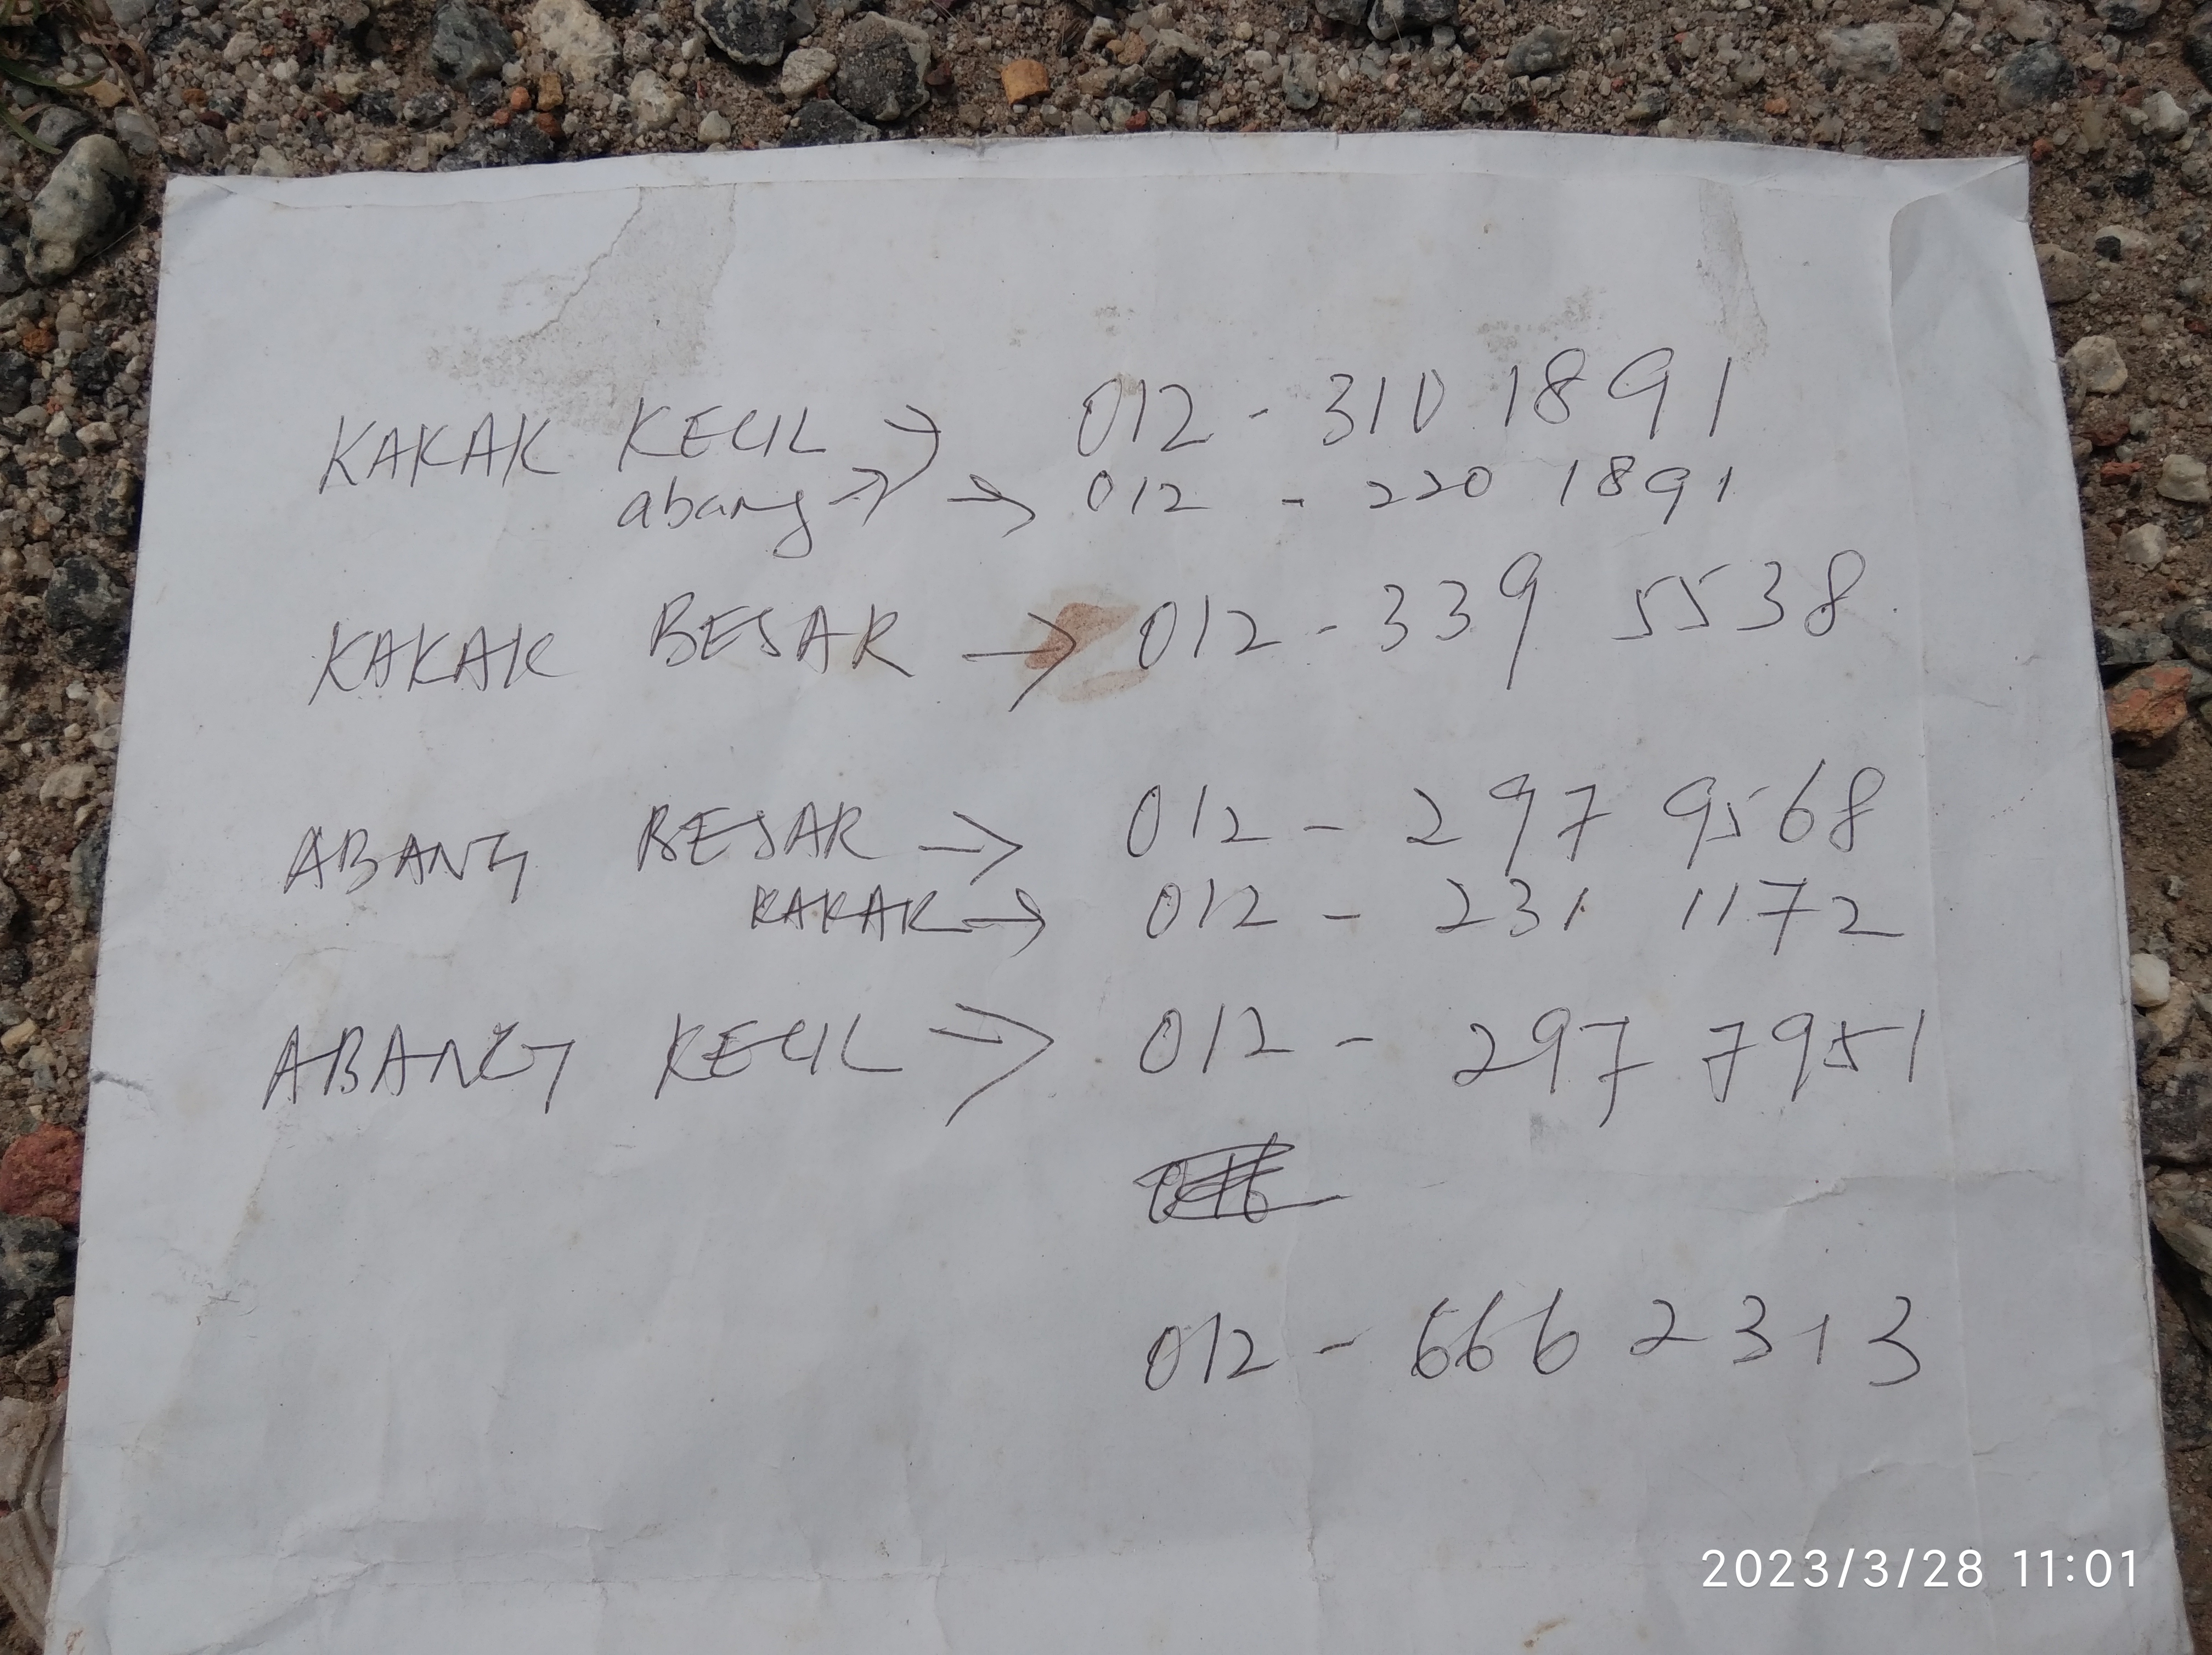 KAKAK KECIL → 012 - 310 1891
abang → → 012 - 220 1891
KAKAK BESAR → 012 - 339 5538
ABANG BESAR → 012 - 297 9568
KAKAK → 012 - 231 1172
ABANG KECIL → 012 - 297 7951
012 - 666 2313
2023/3/28 11:01